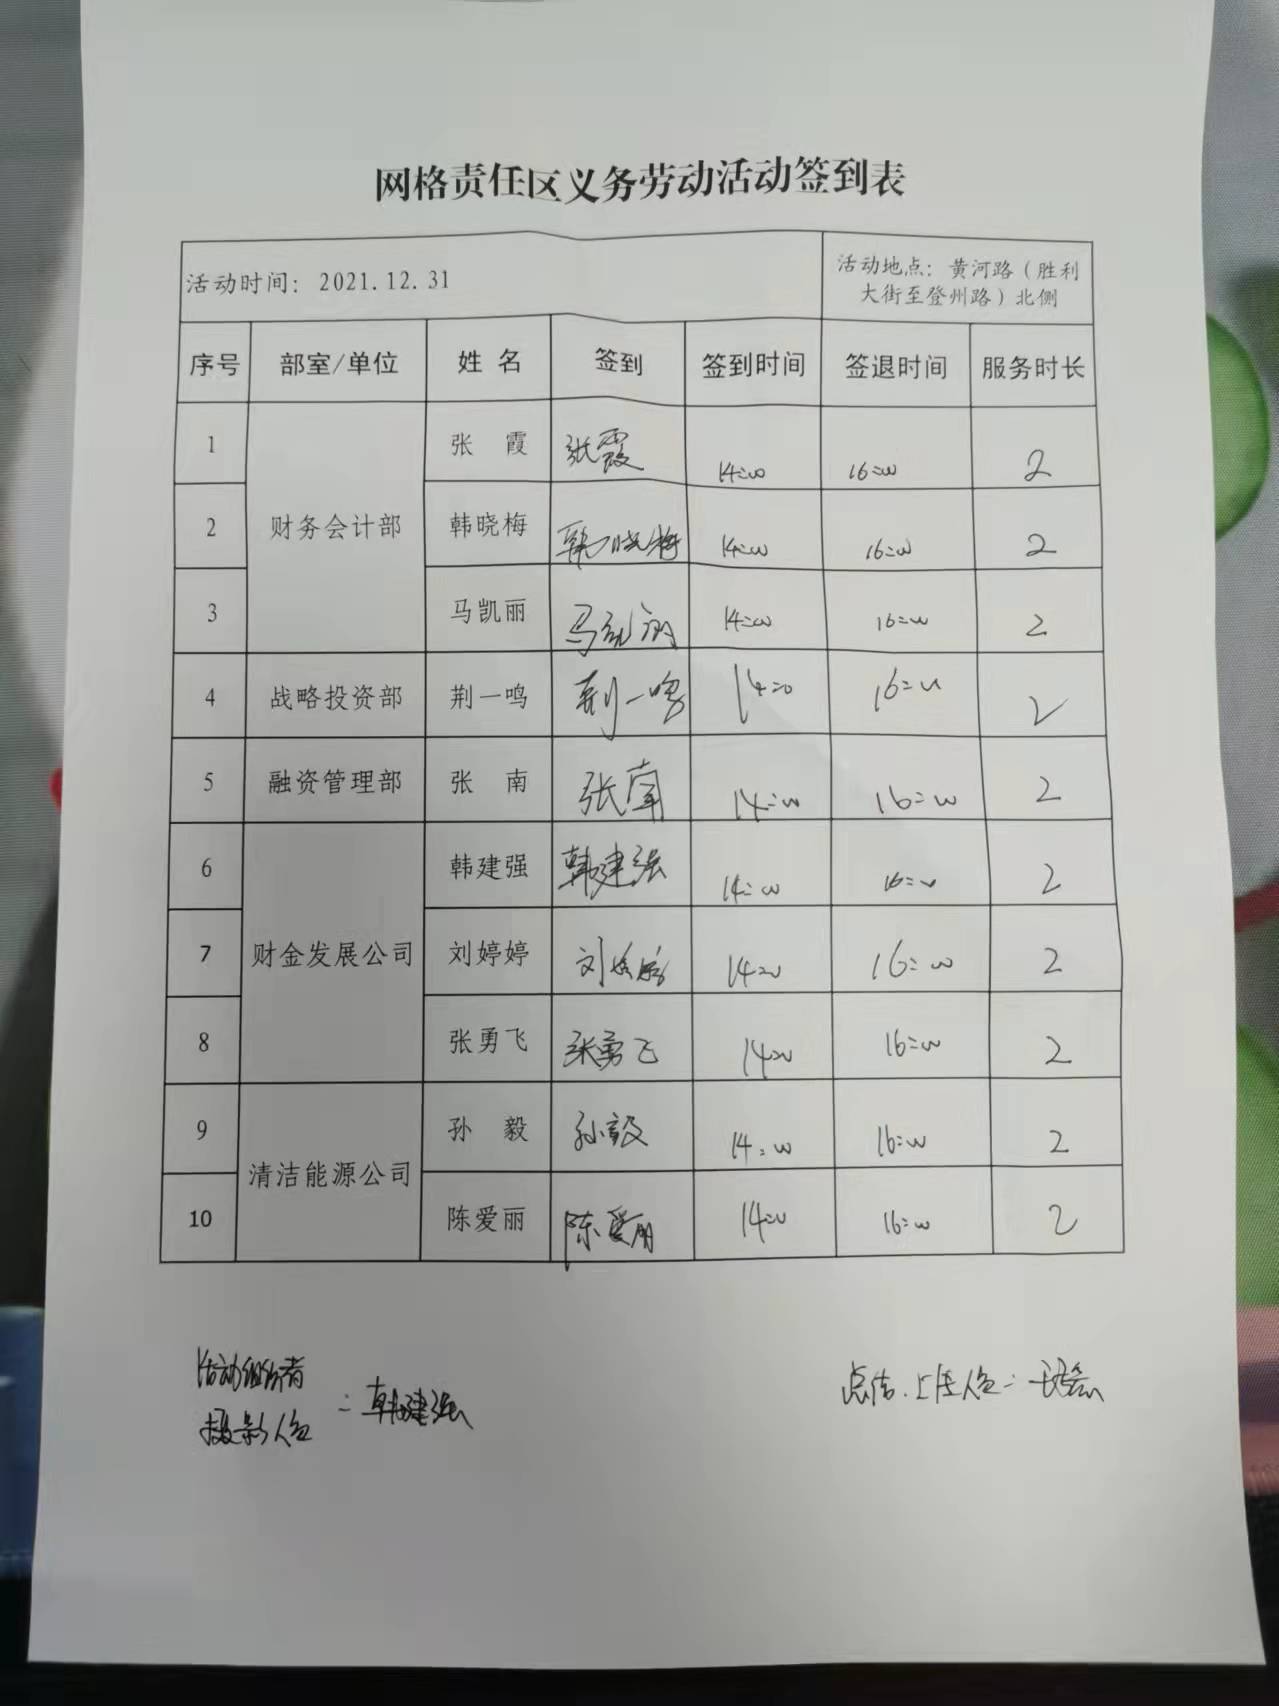 网格责任区义务劳动活动签到表
活动时间：2021.12.31
活动地点：黄河路（胜利
大街至登州路）北侧
序号 部室/单位 姓 名 签到 签到时间 签退时间 服务时长
1 财务会计部 张 霞 张霞 14:00 16:00 2
2 韩晓梅 韩晓梅 14:00 16:00 2
3 马凯丽 马凯丽 14:00 16:00 2
4 战略投资部 荆一鸣 荆一鸣 14:00 16:00 2
5 融资管理部 张 南 张南 14:00 16:00 2
6 财金发展公司 韩建强 韩建强 14:00 16:00 2
7 刘婷婷 刘婷婷 14:00 16:00 2
8 张勇飞 张勇飞 14:00 16:00 2
9 清洁能源公司 孙 毅 孙毅 14:00 16:00 2
10 陈爱丽 陈爱丽 14:00 16:00 2
活动组织者
摄影人员
：韩建强
上传人员：